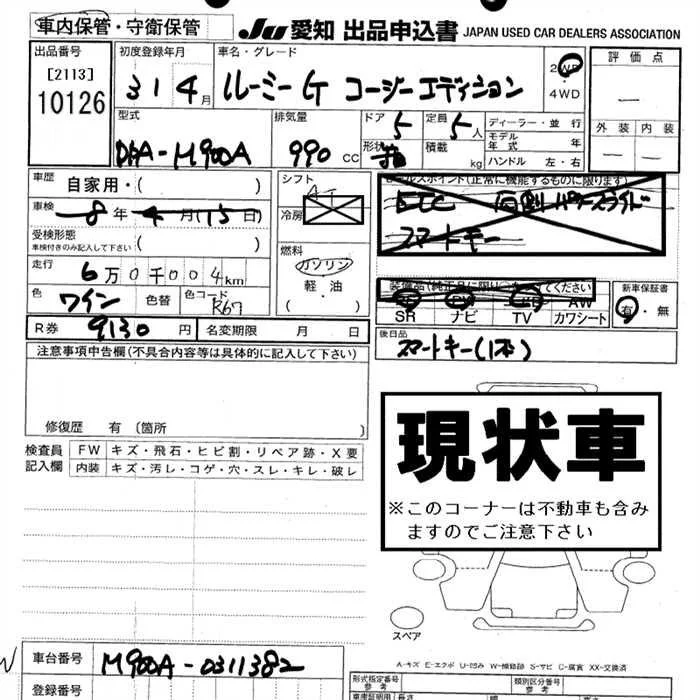 車内保管・守衛保管
JU 愛知 出品申込書 JAPAN USED CAR DEALERS ASSOCIATION
出品番号
[2113]
10126
初度登録年月
31 4月
車名・グレード
ルーミーG コージーエディション
2WD
・4WD
評価点
—
外装 内装
— —
型式
DBA-M900A
排気量
990 CC
ドア 5
形状
定員 5人
積載 kg
ディーラー・並行
モデル年式 年
ハンドル 左・右
車歴 自家用・( )
車検 8年 4月(15日)
受検形態
車検付きのみ記入して下さい ( )
走行 6万0千004km
色 ワイン 色替 色コード R67
シフト AT
冷房
燃料
ガソリン
軽・油
( )
セールスポイント(正常に機能するものに限ります)
ETC 両側パワースライド
スマートキー
装備品(純正品に限り○をしてください)
AW
SR ナビ TV カワシート
新車保証書
有・無
R券 9130円 名変期限 月 日
後日品
スマートキー(1本)
注意事項申告欄(不具合内容等は具体的に記入して下さい)
修復歴 有 〔箇所 〕
検査員記入欄
FW キズ・飛石・ヒビ割・リペア跡・X要
内装 キズ・汚レ・コゲ・穴・スレ・キレ・破レ
現状車
※このコーナーは不動車も含み
ますのでご注意下さい
スペア
A-キズ E-エクボ U-凹み W-補修跡 S-サビ C-腐食 XX-交換済
車台番号 M900A-0311382
登録番号
形式指定番号
参考
類別区分番号
参考
車庫証明用
長さ